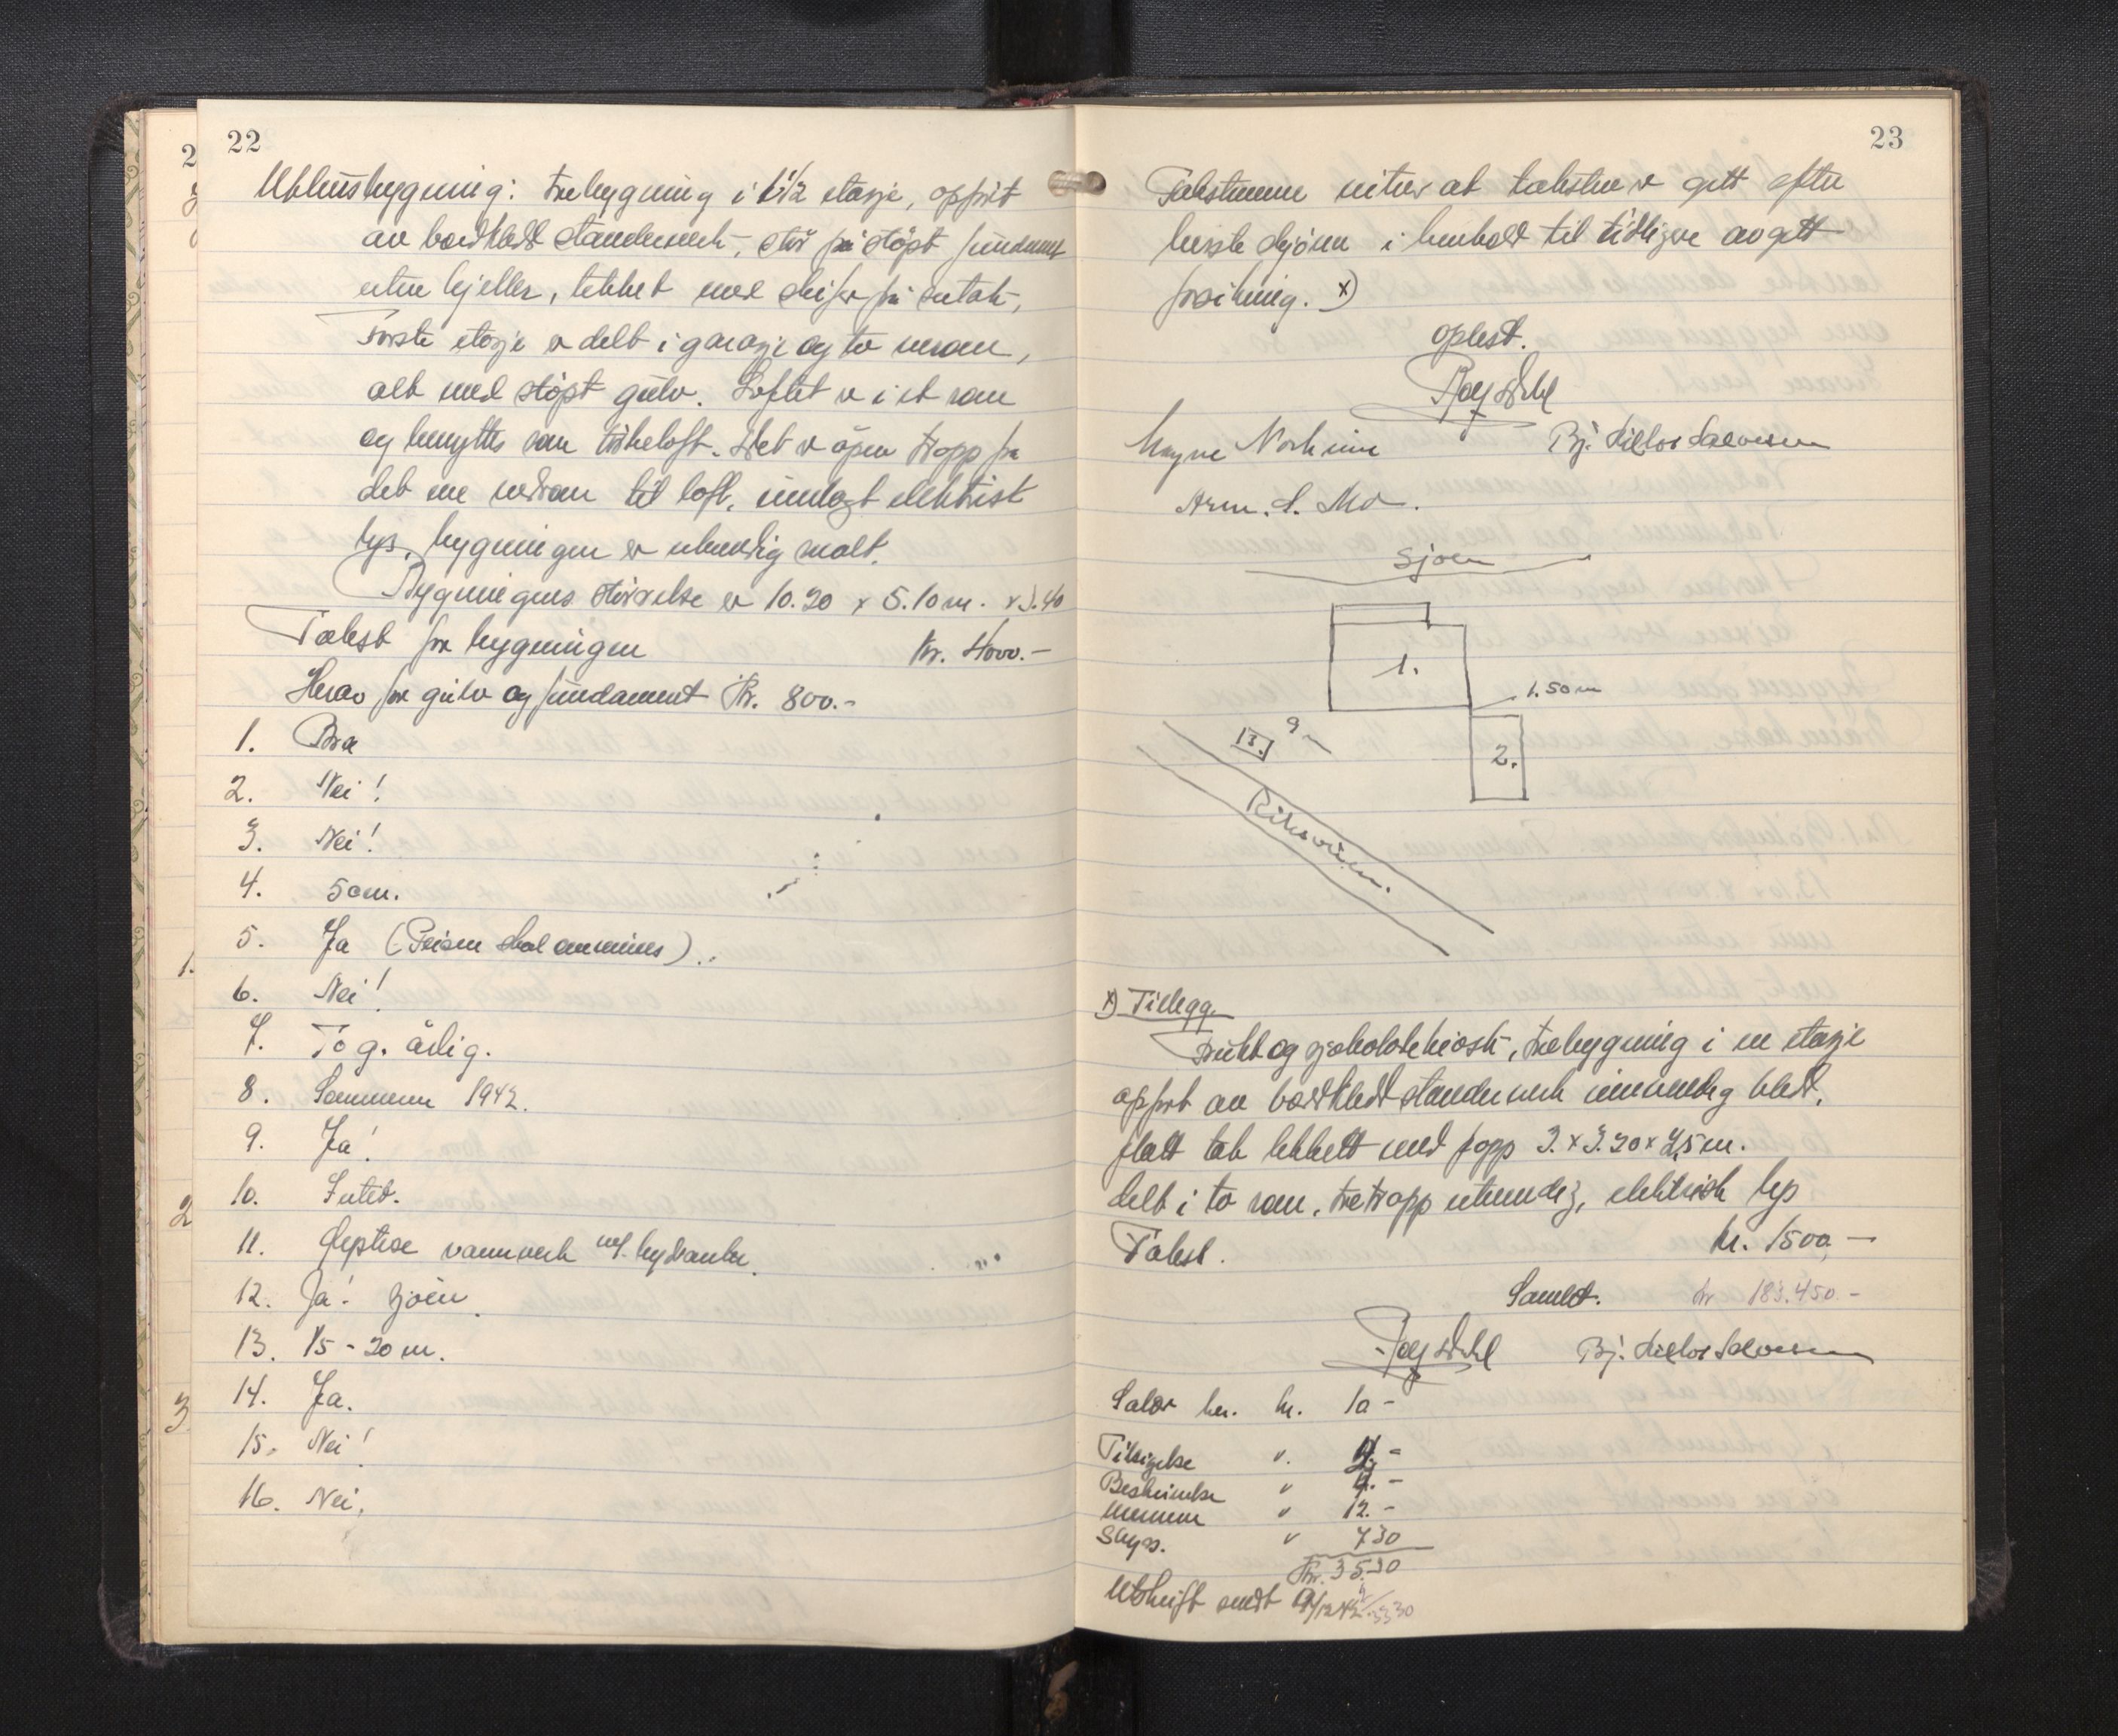 22
Uthusbygning: trebygning i 1 1/2 etasje, oppført
av bordkledd standerverk, står på støpt fundament
uten kjeller, tekket med skifer på sutak,
Første etasje er delt i garasje og to uerom,
alt med støpt gulv. Loftet er i et rom
og benyttes som tørkeloft. Det er åpen trapp fra
det ene uerom til loft, innlagt elektrisk
lys, bygningen er utvendig malt.
Bygningens størrelse er 10.20 x 5.10 m. x 3.40
Takst for bygningen kr. 4000.-
Herav for gulv og fundament Kr. 800.-
1. Bra
2. Nei!
3. Nei!
4. 50m.
5. Ja (Peisen skal ommures).
6. Nei!
7. To g. årlig.
8. Sommeren 1942.
9. Ja!
10. Luted.
11. vannverk m/ hydranter.
12. Ja! Sjøen.
13. 15-20 m.
14. Ja.
15. Nei!
16. Nei.
23
Takstmenn at taksten er gitt efter
beste skjønn i henhold til tidligere avgitt
forsikring. x)
oplest.
Magne Norheim Bj. Salvesen
Arm. S. Mo.
Sjøen
1.
1.50 m
9 m
13.
2.
Riksveien.
x) Tillegg.
Frukt og sjokoladekiosk, trebygning i en etasje
oppført av bordkledd standerverk innvendig kledd,
flatt tak tekkett med papp 3. x 3.20 x 2,5 m.
delt i to rom, tretrapp utvendig, elektrisk lys
Takst. kr. 1500,-
Samlet. kr 183.450.-
Bj. Salvesen
Salær kr. 10-
Tilsigelse " -
Beskrivelse " 4.-
" 12.-
Skyss. " 7.30
Kr. 35.30
Utskrift sendt /12 42 33.30